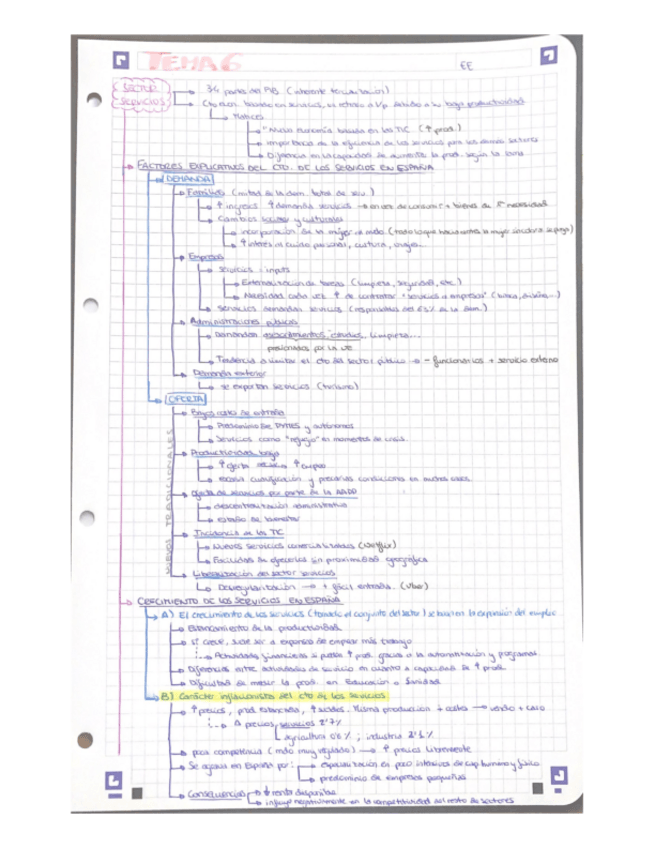 TEMA 6
EE
SECTOR SERVICIOS
3/4 partes del PIB (inherente terciarización)
Cto econ. basado en servicios, es retraso a Vp debido a la baja productividad
Matices
"Nueva economía basada en las TIC (↑ prod.)
Importancia de la eficiencia de los servicios para los demás sectores
Diferencia en la capacidad de aumento la prod. según la rama
FACTORES EXPLICATIVOS DEL CTO. DE LOS SERVICIOS EN ESPAÑA
DEMANDA
Familias (mitad de la dem. total de serv.)
↑ ingresos ↑ demanda servicios → en vez de consumir + bienes de 1ª necesidad
Cambios sociales y culturales
incorporación de la mujer al mdo.
↑ interés en cuido personal, cultura, viajes...
Empresas
servicios = inputs
Externalización de tareas (limpieza, seguridad, etc.)
Necesidad cada vez ↑ de contratar "servicios a empresas"
Servicios demandan servicios
Administraciones públicas
Demandan asesoramientos, estudios, limpieza...
presionados por la UE
Tendencia a limitar el cto del sector público → - funcionarios + servicio externo
Demanda exterior
se exportan servicios (turismo)
OFERTA
NUEVOS TRADICIONALES
Bajos costes de entrada
Predominio de PYMES y autónomos
Servicios como "refugio" en momentos de crisis.
Productividad baja
↑ oferta necesita ↑ empleo
escasa cualificación y precarias condiciones en muchos casos.
Oferta de servicios por parte de la AAPP
descentralización administrativa
estado de bienestar
Incidencia de las TIC
Nuevos servicios comercializados (Netflix)
Facilidades de ofrecerlos sin proximidad geográfica
Liberalización del sector servicios
Desregularización → + fácil entrada. (Uber)
CRECIMIENTO DE LOS SERVICIOS EN ESPAÑA
A) El crecimiento de los servicios (tomado el conjunto del sector) se basa en la expansión del empleo
Estancamiento de la productividad
si crece, suele ser a expensas de emplear más trabajo
Actividades financieras si puede ↑ prod. gracias a la automatización y programas.
Diferencias entre actividades de servicio en cuanto a capacidad de ↑ prod.
Dificultad de medir la prod. en Educación o Sanidad
B) Carácter inflacionista del cto de los servicios
↑ precios, prod estancada, ↑ salarios. Misma producción + costes → vendo + caro
Δ precios, servicios 2'7%
agricultura 0'6% ; industria 2'1%
poca competencia (mdo muy regulado) → ↑ precios libremente
Se agrava en España por: especialización en poco intensivas de cap humano y físico
predominio de empresas pequeñas
Consecuencias → ↓ renta disponible
influye negativamente en la competitividad del resto de sectores